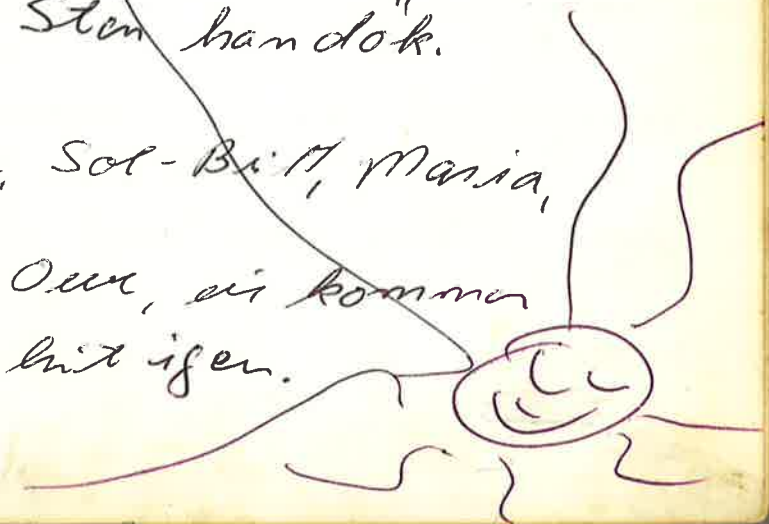 Sten han dök.
Sol-Britt, Maria,
vi kommer
hit igen.